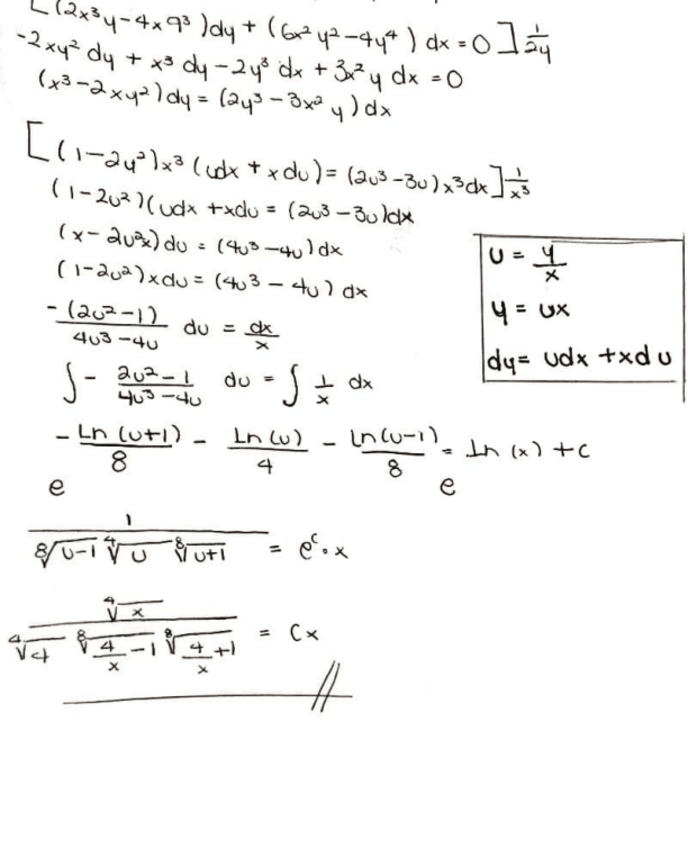 [(2x³y-4x9³)dy + (6x²y²-4y⁴) dx = 0] 1/2y
-2xy² dy + x³ dy - 2y³ dx + 3x² y dx = 0
(x³-2xy²)dy = (2y³-3x² y)dx
[(1-2y²)x³(udx + xdu) = (2u³-3u)x³dx] 1/x³
(1-2u²)(udx +xdu = (2u³-3u)dx
(x-2u²x)du = (4u³-4u)dx
(1-2u²)xdu = (4u³-4u) dx
-(2u²-1)/4u³-4u du = dx/x
∫ - 2u²-1/4u³-4u du = ∫ 1/x dx
e - Ln(u+1)/8 - Ln(u)/4 - ln(u-1)/8 = e Ln(x) + c
1/⁸√u-1 ⁴√u ⁸√u+1 = eᶜ·x
⁴√x/⁴√4 ⁸√4/x-1 ⁸√4/x+1 = Cx
u = y/x
y = ux
dy = udx +xdu